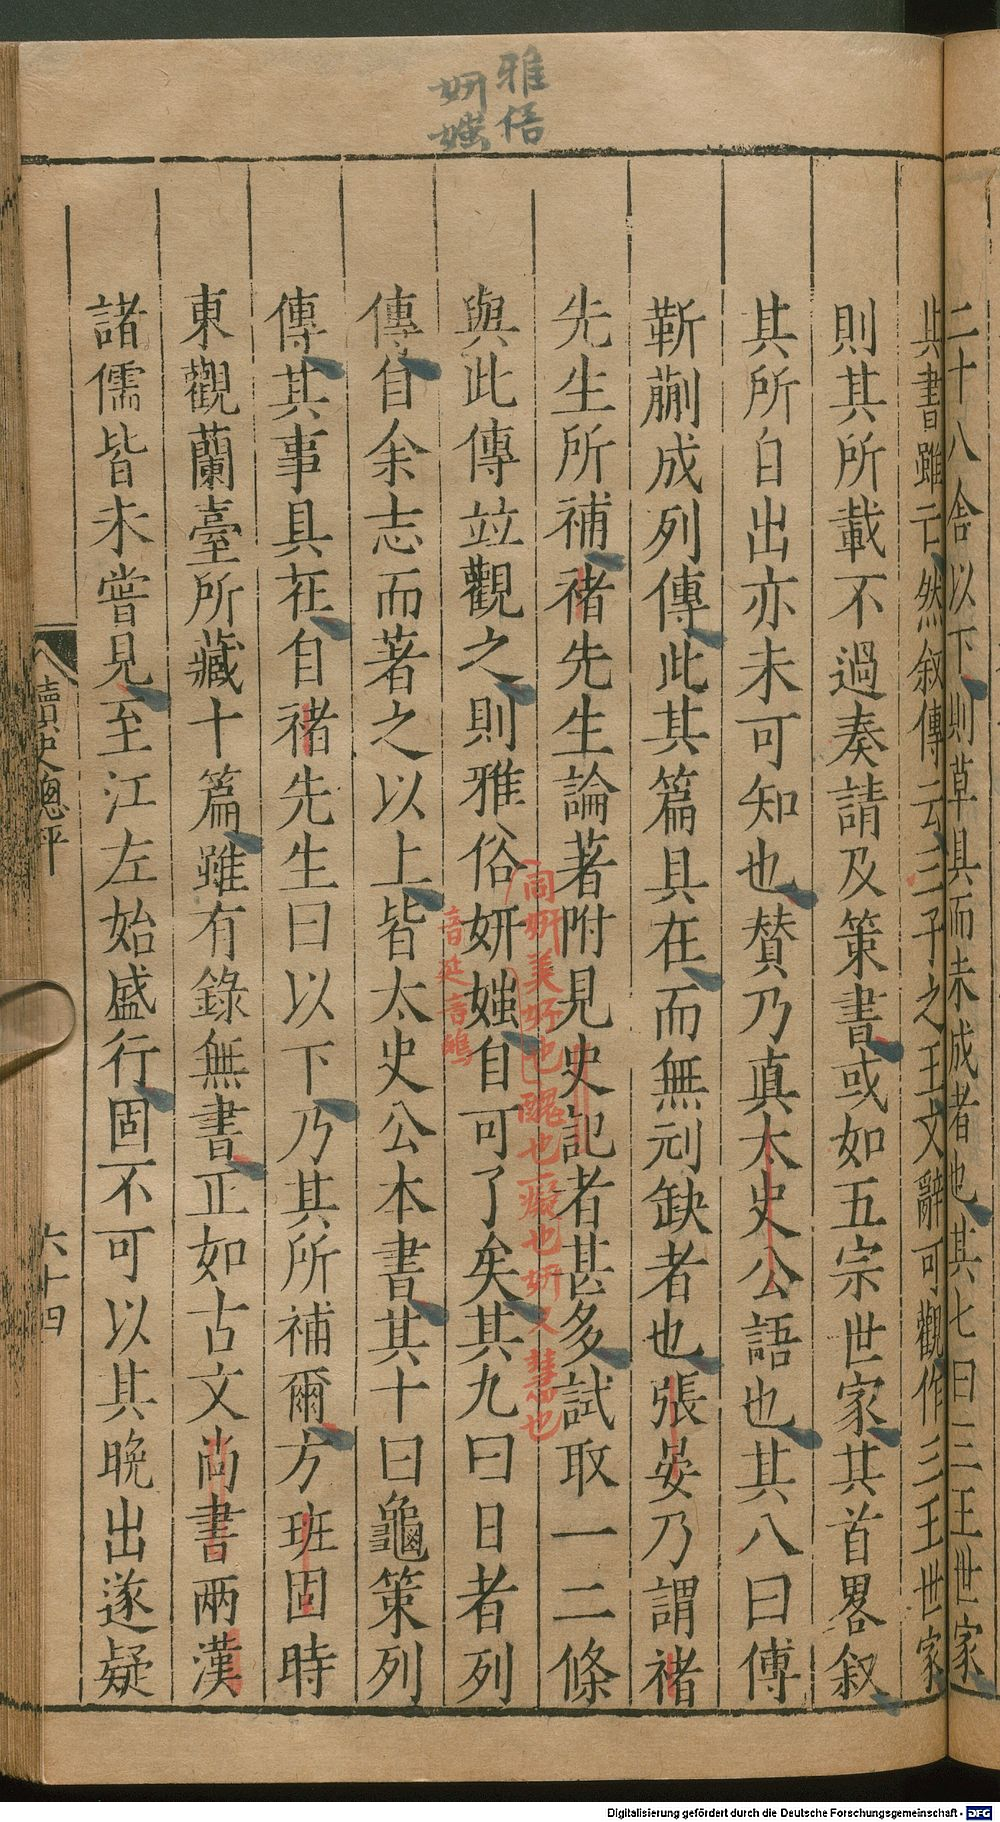 雅俗
妍媸
二十八舍以下則草具而未成者也其七曰三王世家
其書雖亡然叙傳云三子之王文辭可觀作三王世家
則其所載不過奏請及策書或如五宗世家其首畧叙
其所自出亦未可知也贊乃真太史公語也其八曰傅
靳蒯成列傳此其篇具在而無刓缺者也張晏乃謂褚
先生所補褚先生論著附見史記者甚多試取一二條
同妍美好也醜也一癡也妍又慧也
與此傳竝觀之則雅俗妍媸自可了矣其九曰日者列
音延言鴟
傳自余志而著之以上皆太史公本書其十曰龜策列
傳其事具在自褚先生曰以下乃其所補爾方班固時
東觀蘭臺所藏十篇雖有錄無書正如古文尚書兩漢
諸儒皆未嘗見至江左始盛行固不可以其晚出遂疑
讀史總評
六十四
Digitalisierung gefördert durch die Deutsche Forschungsgemeinschaft - DFG